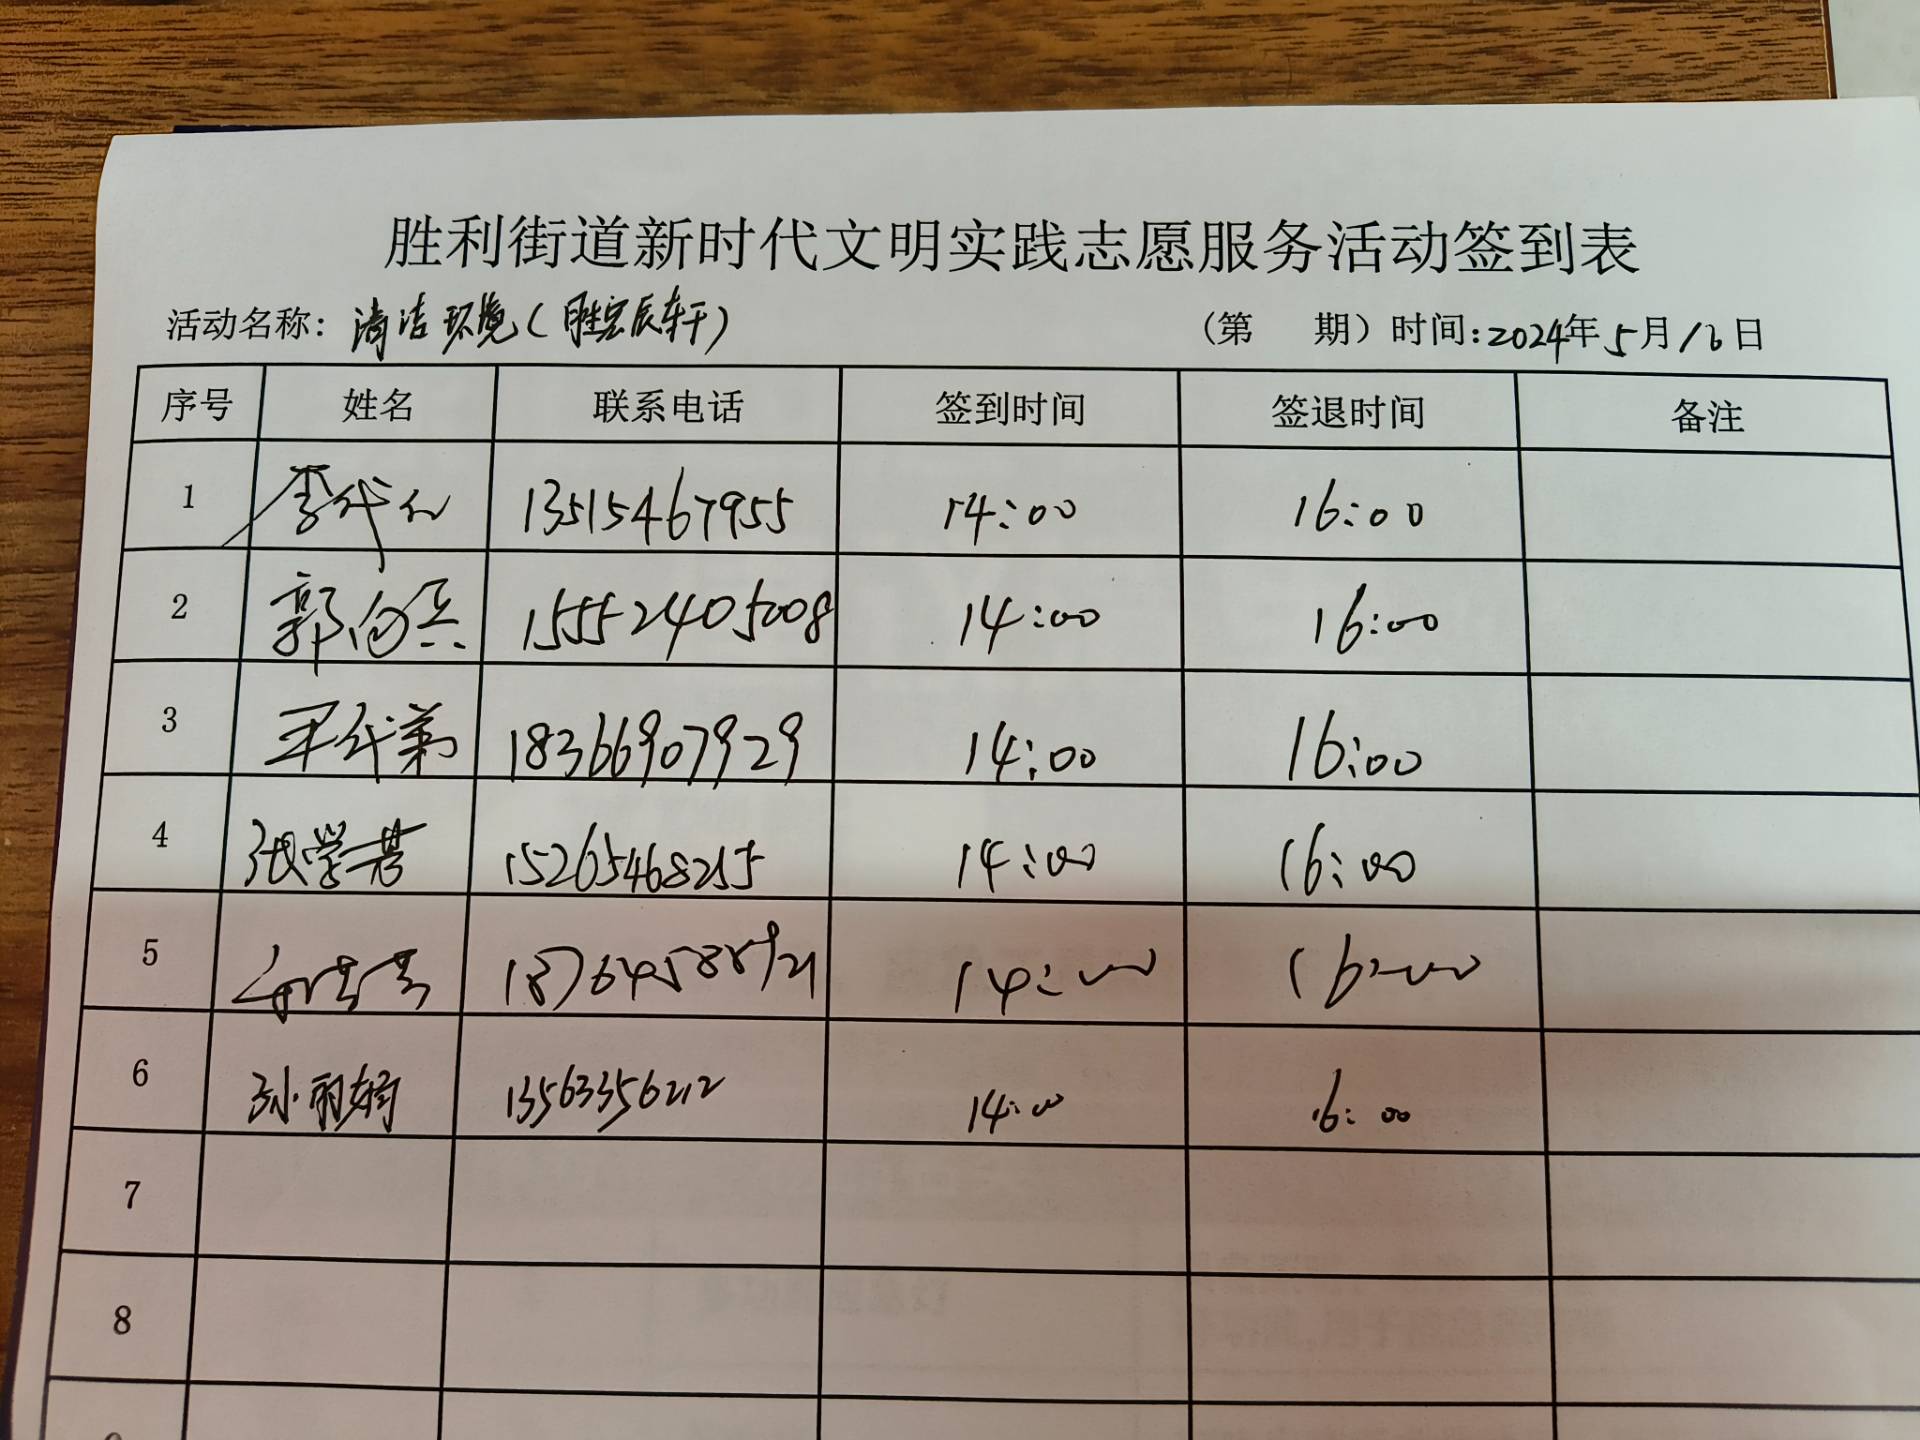 胜利街道新时代文明实践志愿服务活动签到表
活动名称: 清洁环境(胜宏辰轩) (第 期) 时间:2024年5月16日
序号 姓名 联系电话 签到时间 签退时间 备注
1 李代 13515467955 14:00 16:00
2 郭向兵 15552405008 14:00 16:00
3 王代弟 18366907929 14:00 16:00
4 张学芳 15265468255 14:00 16:00
5 14:00 16:00
6 孙丽娟 13563356212 14:00 16:00
7
8